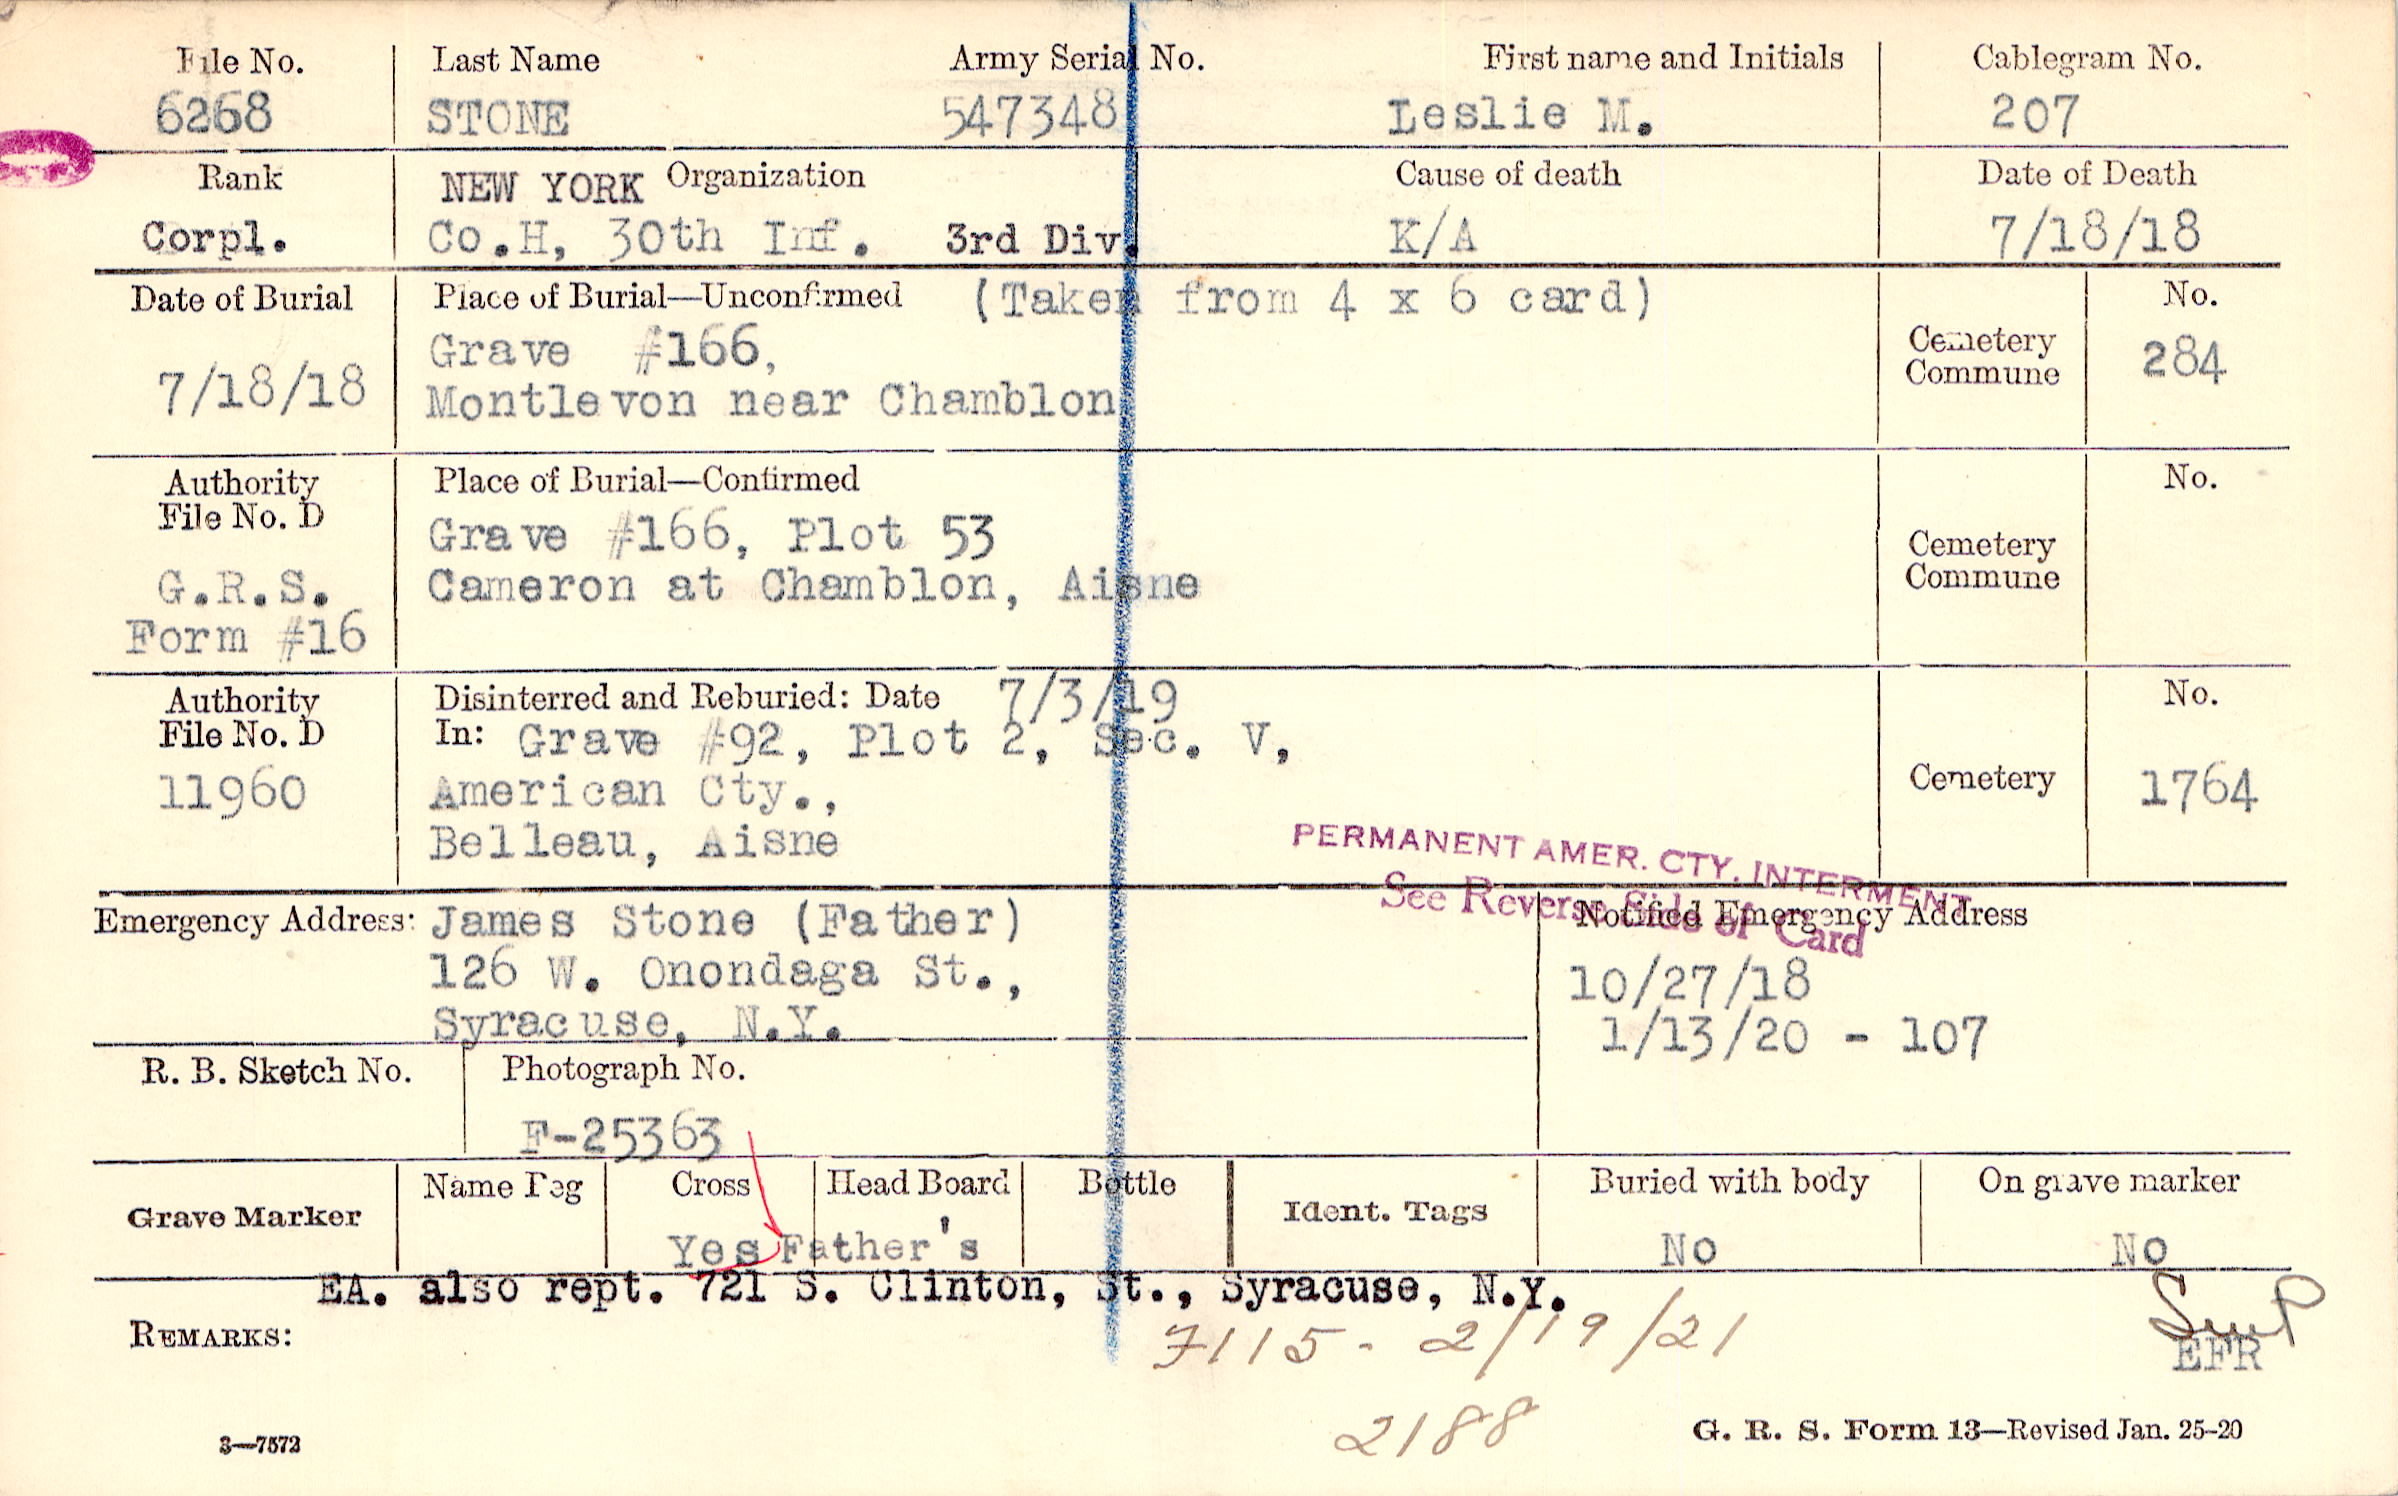 File No. Last Name Army Serial No. First name and Initials Cablegram No.
6268 STONE 547348 Leslie M. 207
Rank NEW YORK Organization Cause of death Date of Death
Corpl. Co.H, 30th Inf. 3rd Div. K/A 7/18/18
Date of Burial Place of Burial—Unconfirmed (Taken from 4 x 6 card) No.
Grave #166, Cemetery
7/18/18 Montlevon near Chamblon Commune 284
Authority Place of Burial—Confirmed No.
File No. D Grave #166, Plot 53 Cemetery
G.R.S. Cameron at Chamblon, Aisne Commune
Form #16
Authority Disinterred and Reburied: Date 7/3/19 No.
File No. D In: Grave #92, Plot 2, Sec. V,
11960 American Cty., Cemetery 1764
Belleau, Aisne
PERMANENT AMER. CTY. INTERMENT
See Reverse Side of Card
Emergency Address: James Stone (Father) Notified Emergency Address
126 W. Onondaga St., 10/27/18
Syracuse, N.Y. 1/13/20 - 107
R. B. Sketch No. Photograph No.
F-25363
Grave Marker Name Peg Cross Head Board Bottle Ident. Tags Buried with body On grave marker
Yes Father's No No
EA. also rept. 721 S. Clinton, St., Syracuse, N.Y.
REMARKS: 7115 - 2/19/21
EFR
2188
3—7572 G. R. S. Form 13—Revised Jan. 25-20